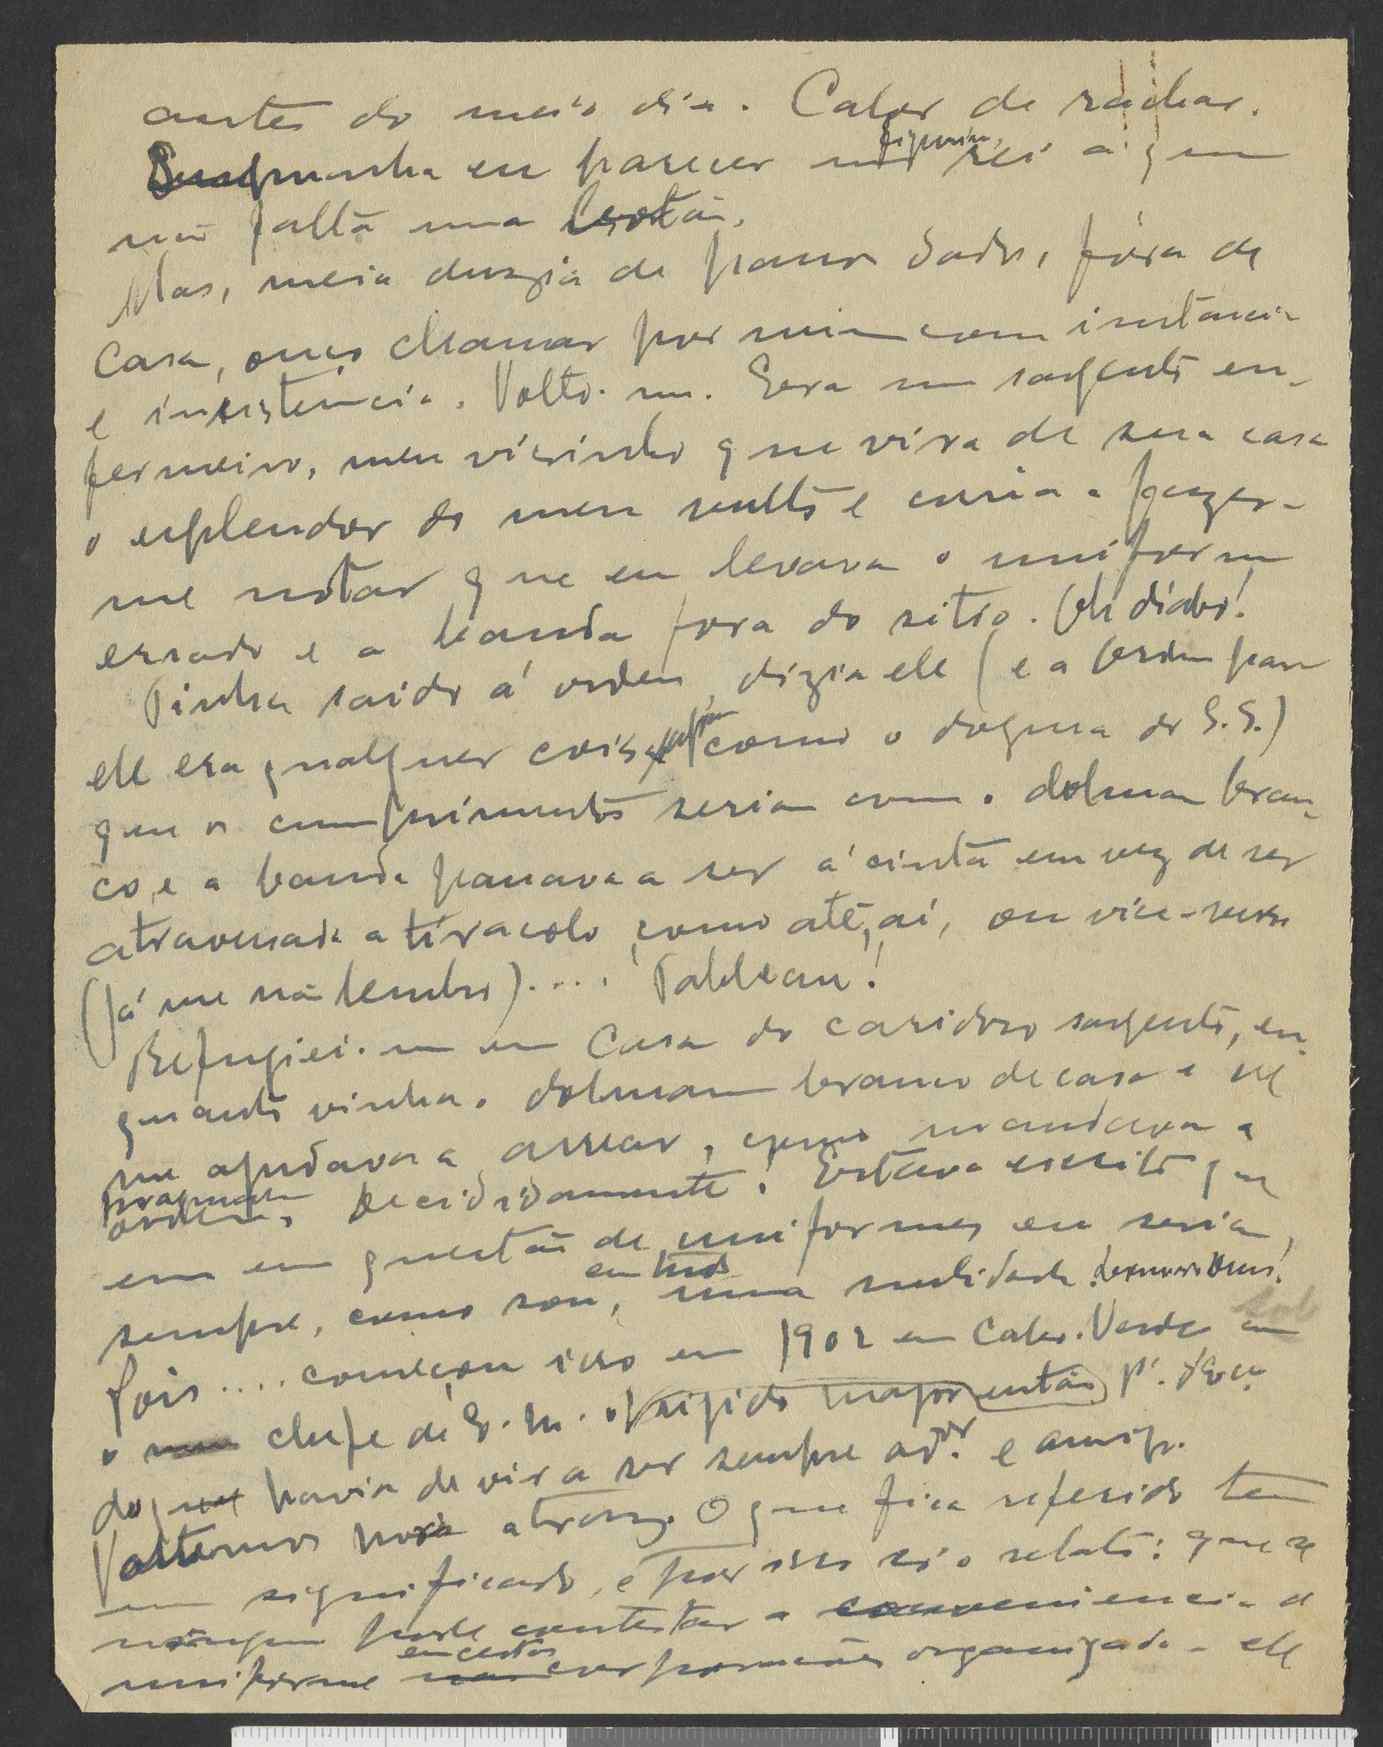 antes do meio dia. Calor de rachar.
punha eu parecer um rei a quem
não falta um botão.
Mas, meia duzia de passos dados, fóra de
casa, ouço chamar por mim com instancia
e insistencia. Volto-me. Era um sargento en-
fermeiro, meu visinho que vira de sua casa
o esplendor do meu vulto e corria a fazer-
me notar que eu levava o uniforme
errado e a banda fora do sitio. Oh diabo!
Tinha saido á ordem, dizia ele (e a ordem para
ele era qualquer coisa como o dogma do S.S.)
que os cumprimentos seriam com o dolman bran-
co, e a banda passava a ser á cinta em vez de ser
atravessada a tiracolo como até aí, ou vice-versa
(já me não lembro).... Tableau!
Refugiei-me em casa do caridoso sargento, en-
quanto vinha o dolman branco de casa e ele
me ajudava a arrear, como mandava a
pragmatica
ordem. Decididamente! Estava escrito que
em questão de uniformes eu seria,
sempre, como sou, em tudo uma nulidade.
Pois.... começou isso em 1902 em Cabo-Verde
o chefe de E. M. o rigido major
do que havia de vir a ser sempre ad.or e amigo.
Voltemos atraz. O que fica referido tem
um significado, e por isso só o relato: que se
ninguem pode contestar a conveniencia do
uniforme em certas corporações organizadas ele